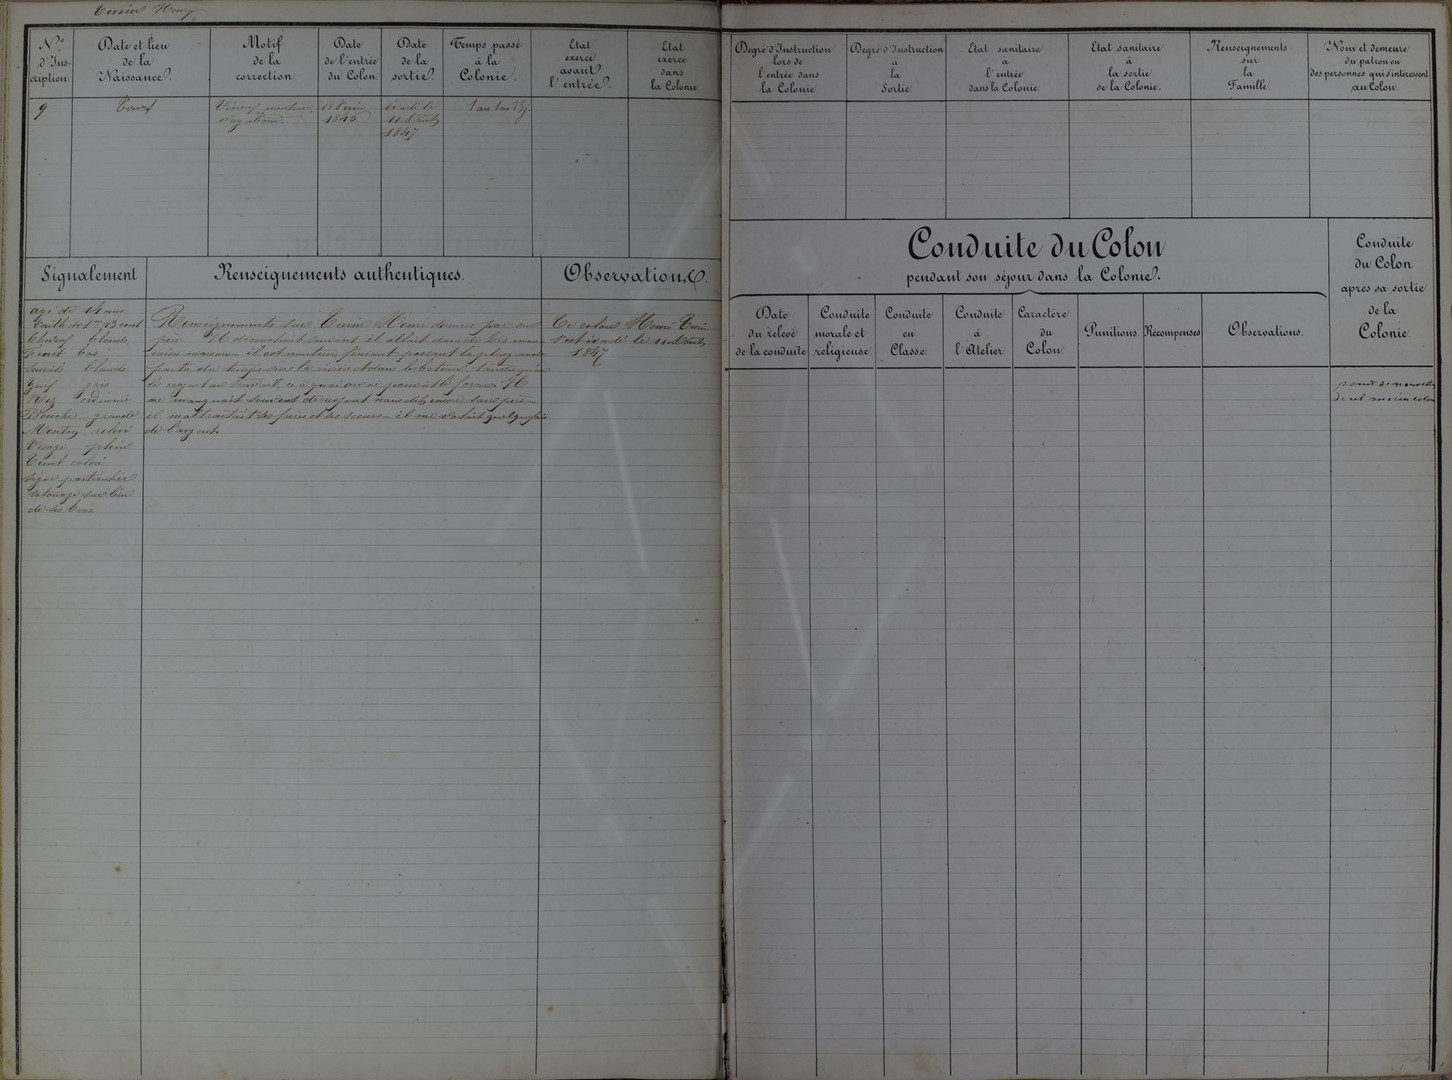 Turin Henry
N.º
d'Ins-
cription
Date et lieu
de la
Naissance.
Motif
de la
correction
Date
de l'entrée
du Colon
Date
de la
sortie.
Temps passé
à la
Colonie.
Etat
exercé
avant
l'entrée.
Etat
exercé
dans
la Colonie
Degré d'Instruction
lors de
l'entrée dans
la Colonie
Degré d'Instruction
à
la
Sortie.
Etat sanitaire
à
l'entrée
dans la Colonie.
Etat sanitaire
à
la sortie
de la Colonie.
Renseignements
sur
la
Famille
Nom et demeure
du patron ou
des personnes qui s'intéressent
au Colon.
9
Tours
vagabond
1846
Evadé le
11
1847
1 an 1 m 23 j
Signalement
Renseignements authentiques.
Observations.
agé de 14 ans
Taille de 1m 43 cent
Cheveux blonds
Front bas
Sourcils blonds
Yeux gris
Nez ordinaire
Bouche grande
Menton relevé
Visage plein
Teint coloré
signe particulier
tatouage sur l'un
de ses bras
Renseignements sur Turin Henri donnés par son
père. Il découchait souvent il allait dans de très mau-
vaises maisons il est menteur fainéant passant la plus grande
partie du temps sur la rivière et dans les bateaux
le travail, à quoi on ne pouvait le forcer. Il
me manquait souvent de respect
il maltraitait ses frères et ses sœurs il me volait quelquefois
de l'argent
Ce colon Henri Turin
s'est évadé le 11
1847
Conduite du Colon
pendant son séjour dans la Colonie.
Conduite
du Colon
après sa sortie
de la
Colonie.
Date
du relevé
de la conduite
Conduite
morale et
religieuse.
Conduite
en
Classe.
Conduite
à
l'Atelier.
Caractère
du
Colon
Punitions
Récompenses
Observations.
point de nouvelles
de cet ancien colon